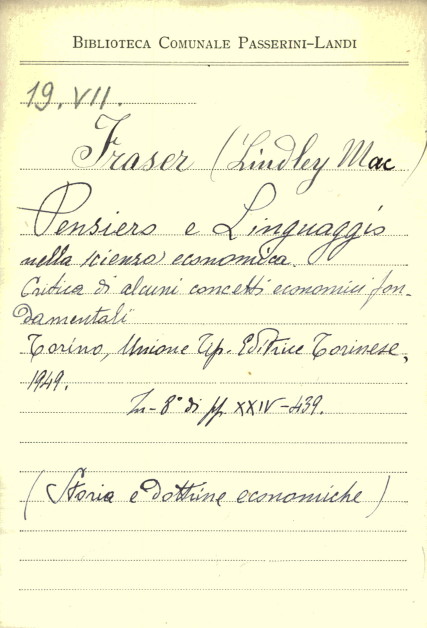 BIBLIOTECA COMUNALE PASSERINI-LANDI
19.VII.
Fraser (Lindley Mac)
Pensiero e Linguaggio
nella scienza economica.
Critica di alcuni concetti economici fon-
damentali
Torino, Unione Tip. Editrice Torinese,
1949.
In-8° di pp. XXIV-439.
(Storia e dottrine economiche)